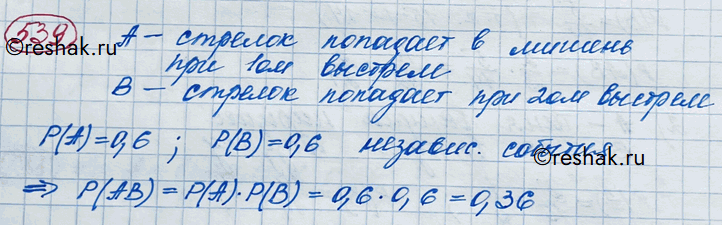 539 А – стрелок попадает в мишень
©reshak.ru при 1ом выстрел
В – стрелок попадает при 2ом выстрел
P(A)=0,6 ; P(B)=0,6 независ. события
©reshak.ru
⇒ P(AB) = P(A)·P(B) = 0,6·0,6 = 0,36